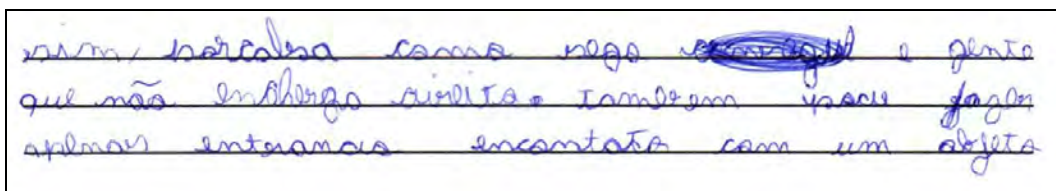 sim, porcalsa como sego e gente
que não enchergo direito. Tambem você fazer
apenas enteranais encantato com um objeto